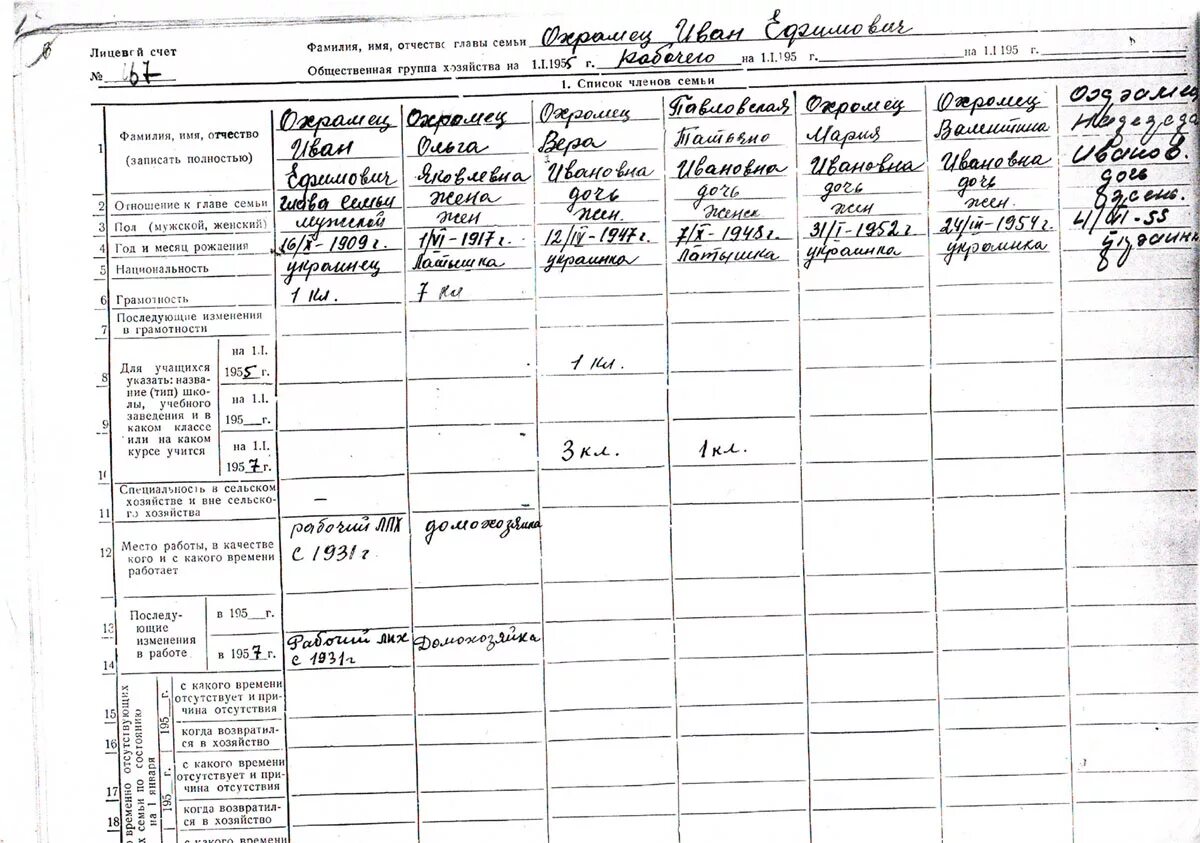 Лицевой счет
№ 67
Фамилия, имя, отчество главы семьи Охрамец Иван Ефимович
Общественная группа хозяйства на 1.I.1955 г. Рабочего на 1.I.195 г. на 1.I.195 г.
1. Список членов семьи
1 Фамилия, имя, отчество (записать полностью) Охрамец Иван Ефимович Охромец Ольга Яковлевна Охромец Вера Ивановна Павловская Татьяно Ивановна Охромец Мария Ивановна Охромец Валентина Ивановна
2 Отношение к главе семьи глава семьи жена дочь дочь дочь дочь дочь
3 Пол (мужской, женский) мужской жен жен. женск жен жен.
4 Год и месяц рождения 16/X-1909 г. 1/VI-1917 г. 12/IV-1947 г. 7/X-1948 г. 31/I-1952 г. 24/III-1954 г.
5 Национальность украинец Латышка украинка Латышка украинка украинка
6 Грамотность 1 кл. 7 кл
7 Последующие изменения в грамотности
Для учащихся указать: название (тип) школы, учебного заведения и в каком классе или на каком курсе учится
8 на 1.I. 1955 г. 1 кл.
9 на 1.I. 195 г.
10 на 1.I. 1957 г. 3 кл. 1 кл.
11 Специальность в сельском хозяйстве и вне сельского хозяйства –
12 Место работы, в качестве кого и с какого времени работает рабочий ЛПХ с 1931 г. домохозяйка
Последующие изменения в работе
13 в 195 г.
14 в 1957 г. Рабочий лпх с 1931 г Домохозяйка
временно отсутствующих семьи по состоянию на 1 января
15 195 г. с какого времени отсутствует и причина отсутствия
16 когда возвратился в хозяйство
17 195 г. с какого времени отсутствует и причина отсутствия
18 когда возвратился в хозяйство
с какого времени